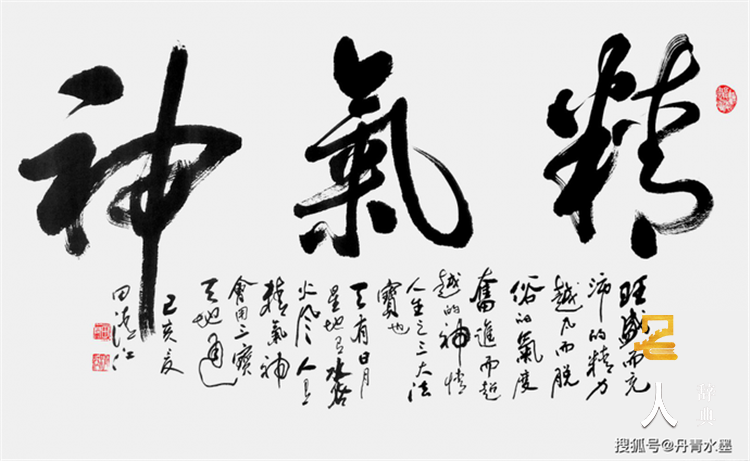 精氣神
旺盛而充
沛的精力
超凡而脱
俗的氣度
奮進而超
越的神情
人生之三大法
寶也
天有日月
星地有水
火风人有
精氣神
會用三寶
天地通
己亥夏
田江
人
辞典
搜狐号@丹青水墨